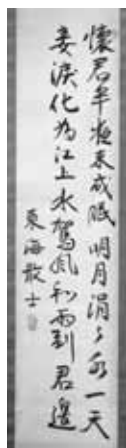 懷君半夜未成眠明月涓々水一天
妾淚化為江上水駕風和雨到君邊
東海散士